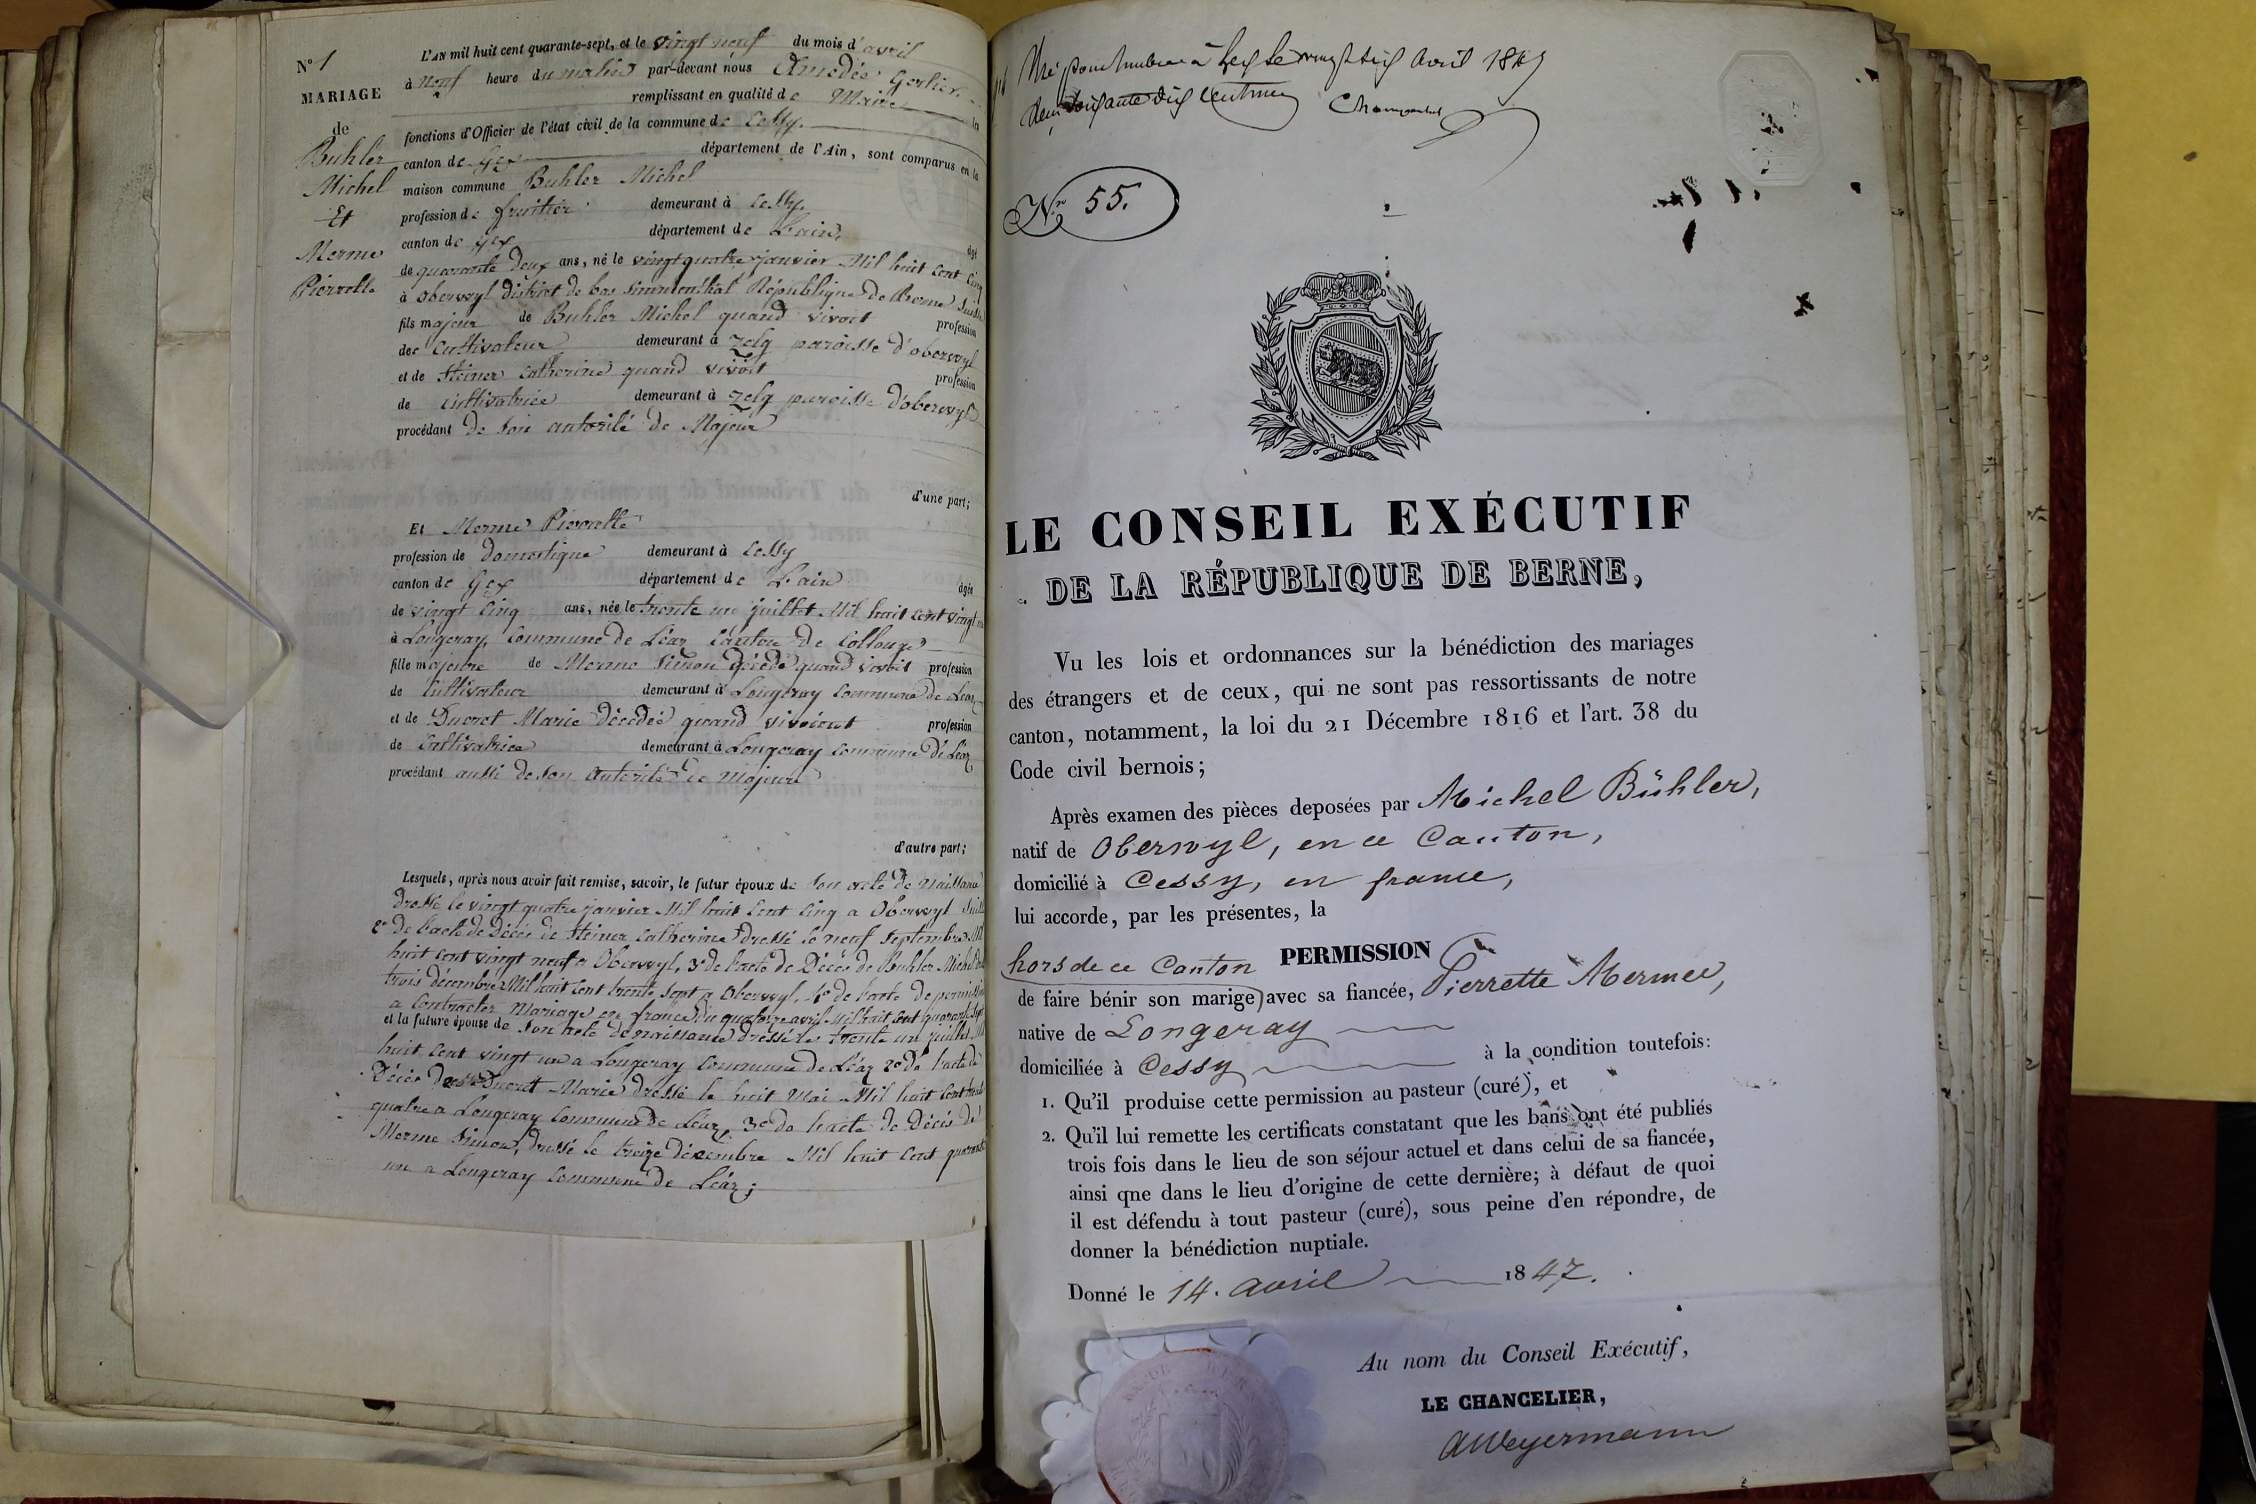 N° 1
MARIAGE
de
Buhler
Michel
Et
Merme
Pierrette
L'AN mil huit cent quarante-sept, et le vingt neuf du mois d'avril
à neuf heure du matin par-devant nous Amedée Gerlier
remplissant en qualité de Maire les
fonctions d'Officier de l'état civil de la commune de Cessy.
canton de Gex département de l'Ain, sont comparus en la
maison commune Buhler Michel
profession de fruitier demeurant à Cessy.
canton de Gex département de L'ain, âgé
de quarante deux ans, né le vingt quatre janvier Mil huit cent cinq
à Oberwyl district de bas Simmenthal République de Berne Suisse
fils majeur de Buhler Michel quand vivoit profession
de cultivateur demeurant à Zelg paroisse d'oberwyl
et de Steiner Catherine quand vivoit profession
de cultivatrice demeurant à Zelg paroisse d'oberwyl
procédant de son autorité de Majeur
d'une part;
Et Merme Pierrette
profession de domestique demeurant à Cessy
canton de Gex département de L'ain âgée
de vingt cinq ans, née le trente un juillet Mil huit cent vingt un
à Longeray, Commune de Léaz Canton de Collonge
fille majeure de Merme Simon décédé quand vivoit profession
de Cultivateur demeurant à Longeray Commune de Léaz
et de Ducret Marie décédée quand vivoient profession
de Cultivatrice demeurant à Longeray Commune de Léaz
procédant aussi de son autorité de majeure
d'autre part;
Lesquels, après nous avoir fait remise, savoir, le futur époux de son acte de Naissance
dressé le vingt quatre janvier Mil huit cent cinq a Oberwyl Suisse
2° de l'acte de Décès de Steiner Catherine dressé le neuf Septembre Mil
huit cent vingt neuf a Oberwyl, 3° de l'acte de Décès de Buhler Michel
trois décembre Mil huit cent trente sept a Oberwyl, 4° de l'acte de permission
a contracter Mariage en france du quatorze avril Mil huit cent quarante sept
et la future épouse de son acte de naissance dressé le trente un juillet Mil
huit cent vingt un a Longeray Commune de Léaz 2° de l'acte de
Décès de Ducret Marie dressé le huit Mai Mil huit cent trente
quatre a Longeray Commune de Léaz, 3° de l'acte de Décès de
Merme Simon, dressé le treize décembre Mil huit cent quarante
un a Longeray Commune de Léaz;
Visé pour timbre à Gex le vingt six avril 1847
soixante dix centimes
Nro 55.
LE CONSEIL EXÉCUTIF
DE LA RÉPUBLIQUE DE BERNE,
Vu les lois et ordonnances sur la bénédiction des mariages
des étrangers et de ceux, qui ne sont pas ressortissants de notre
canton, notamment, la loi du 21 Décembre 1816 et l'art. 38 du
Code civil bernois;
Après examen des pièces deposées par Michel Bühler,
natif de Oberwyl, en ce Canton,
domicilié à Cessy, en france,
lui accorde, par les présentes, la
hors de ce Canton PERMISSION
de faire bénir son marige avec sa fiancée, Pierrette Mermee,
native de Longeray
domiciliée à Cessy à la condition toutefois:
1. Qu'il produise cette permission au pasteur (curé), et
2. Qu'il lui remette les certificats constatant que les bans ont été publiés
trois fois dans le lieu de son séjour actuel et dans celui de sa fiancée,
ainsi qne dans le lieu d'origine de cette dernière; à défaut de quoi
il est défendu à tout pasteur (curé), sous peine d'en répondre, de
donner la bénédiction nuptiale.
Donné le 14. avril 1847.
Au nom du Conseil Exécutif,
LE CHANCELIER,
AWeyermann